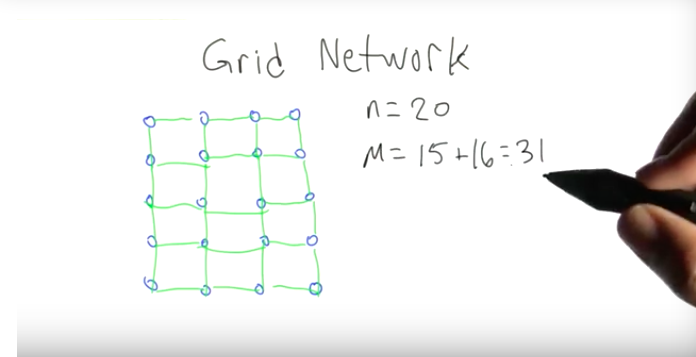 Grid Network
n=20
m=15+16=31